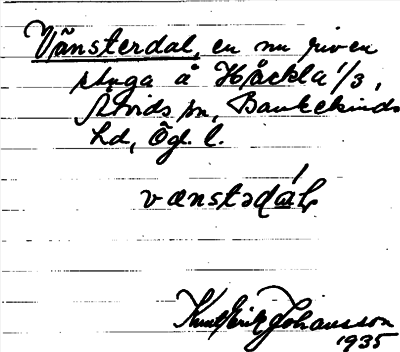 Vänsterdal, en nu riven
stuga å Håckla 1/3,
Åtvids sn, Bankekinds
hd, Ög. l.
vænstədá̱l
Knut Erik Johansson
1935